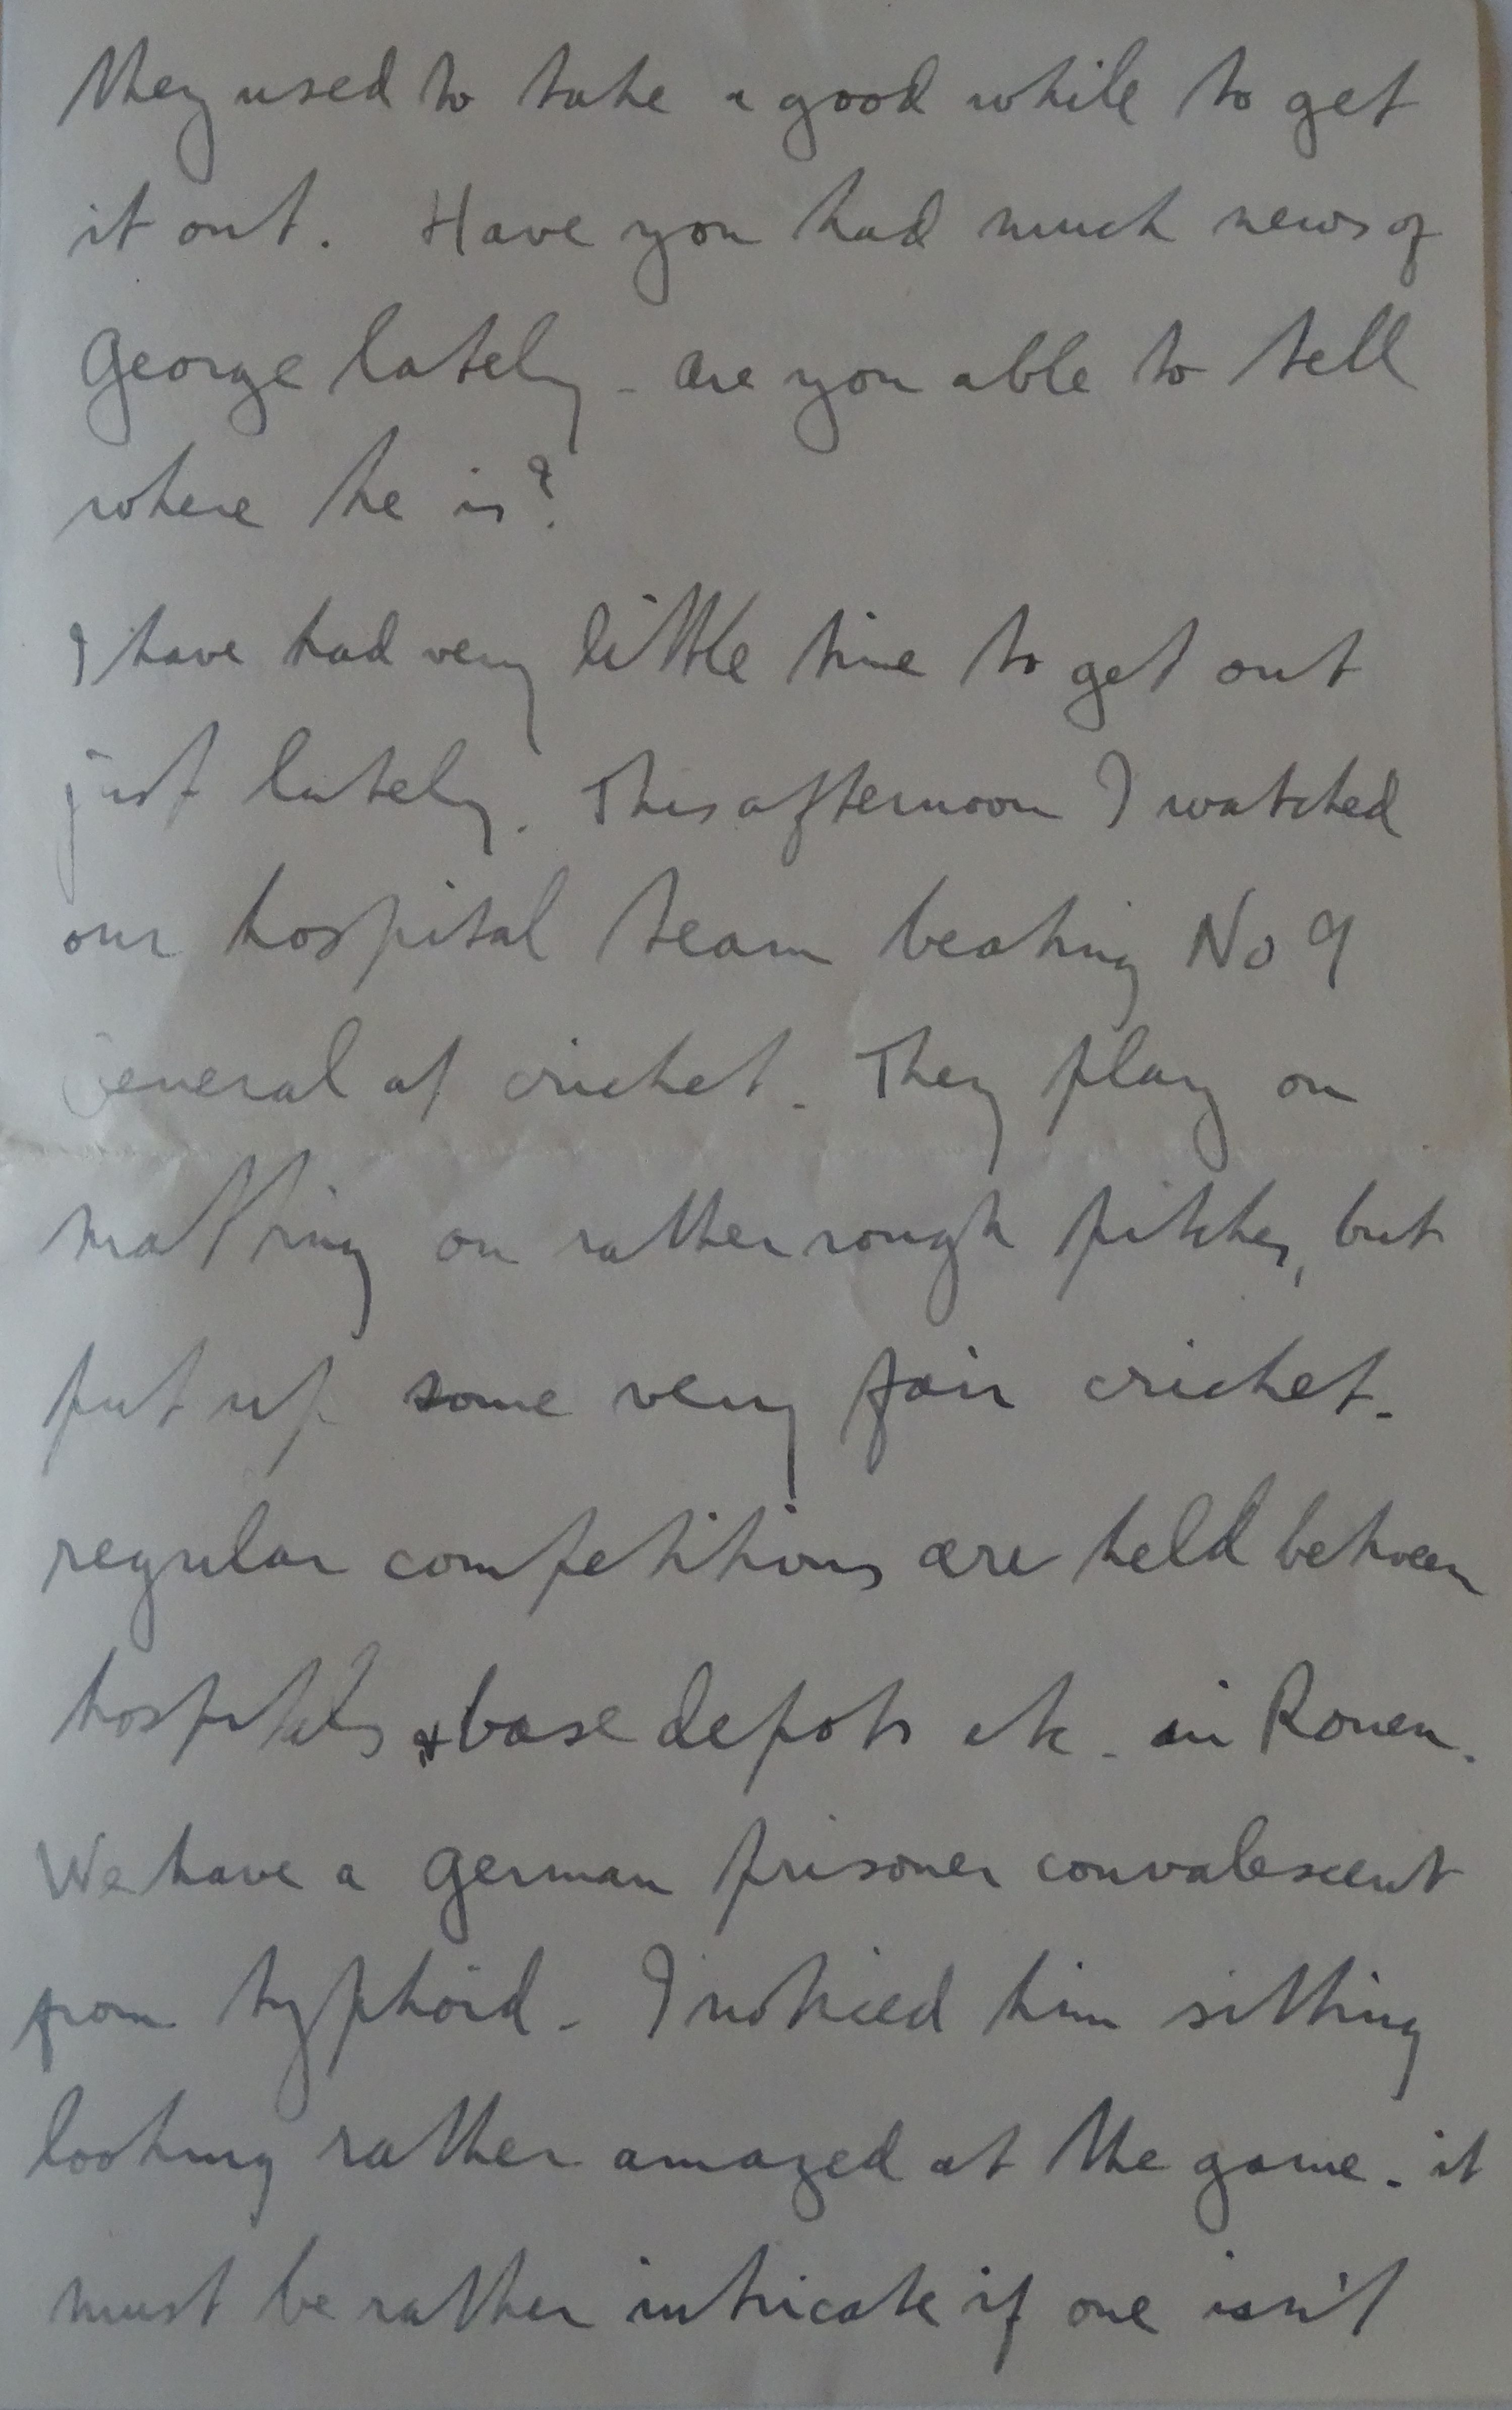 They used to take a good while to get
it out. Have you had much news of
George lately - are you able to tell
where he is?
I have had very little time to get out
just lately. This afternoon I watched
our hospital team beating No 9
General at cricket. They play on
matting on rather rough pitches, but
put up some very fair cricket.
regular competitions are held between
hospitals & base depots etc. in Rouen.
We have a German prisoner convalescent
from typhoid - I noticed him sitting
looking rather amazed at the game - it
must be rather intricate if one isn't